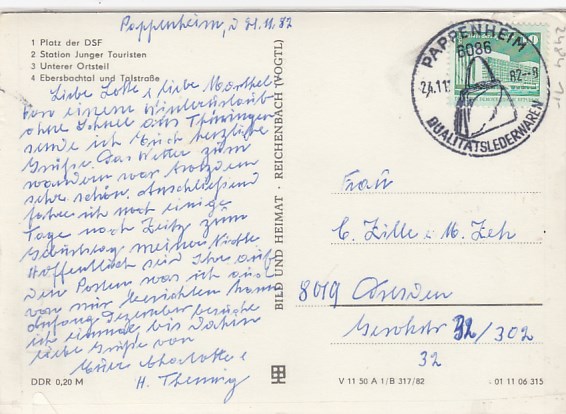 Pappenheim, d 21.11.82
1 Platz der DSF
2 Station Junger Touristen
3 Unterer Ortsteil
4 Ebersbachtal und Talstraße
Liebe Lotte u liebe Marthel
Von einem Winterurlaub
ohne Schnee aus Thüringen
sende ich Euch herzliche
Grüße. Das Wetter zum
wandern war trotzdem
sehr schön. Anschließend
fahre ich noch einige
Tage nach Zeitz zum
Geburtstag meiner Nichte
Hoffentlich seid Ihr auf
den Posten was ich auch
von mir berichten kann
Anfang Dezember besuche
ich einmal bis dahin
liebe Grüße von
Eurer Charlotte u
H. Thennig
DDR 0,20 M
BILD UND HEIMAT · REICHENBACH (VOGTL)
PAPPENHEIM
6086
24.11. 82-8
QUALITÄTSLEDERWAREN
Frau
C. Zille u M. Zeh
8019 Dresden
Gerokstr 32/302
32
V 11 50 A 1/B 317/82
01 11 06 315